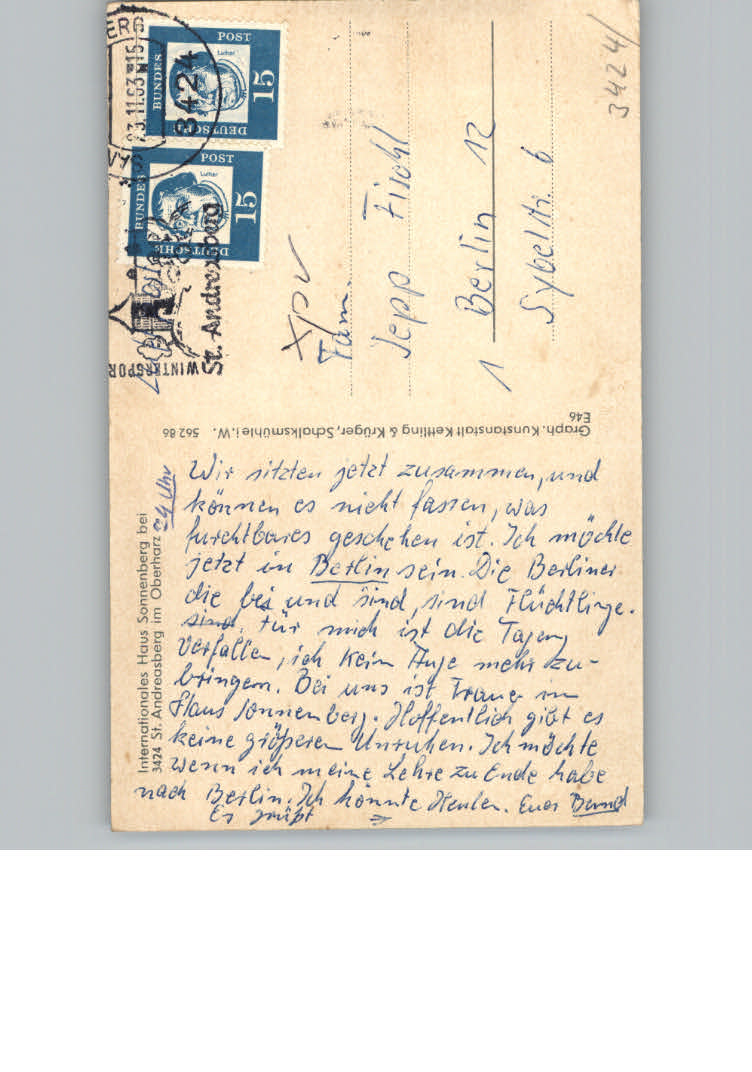 ERG
23.11.63-15
3424
DEUTSCHE
BUNDES
POST
Luther
15
DEUTSCHE
BUNDES
POST
Luther
15
WINTERSPOR
St. Andreasberg
3424/
Fam.
Sepp Fischl
1 Berlin 12
Sybelstr. 6
Graph. Kunstanstalt Kettling & Krüger, Schalksmühle i. W. 562 86
E46
Internationales Haus Sonnenberg bei
3424 St. Andreasberg im Oberharz
24 Uhr
Wir sitzten jetzt zusammen, und
können es nicht fassen, was
furchtbares geschehen ist. Ich möchte
jetzt in Berlin sein. Die Berliner
die bei und sind, sind Flüchtlinge.
sind, für mich ist die Tagung
verfallen, ich kein Auge mehr zu-
bringen. Bei uns ist Trauer im
Haus Sonnenberg. Hoffentlich gibt es
keine größeren Unruhen. Ich möchte
wenn ich meine Lehre zu Ende habe
nach Berlin. Ich könnte Heulen. Euer Bernd
Es grüßt